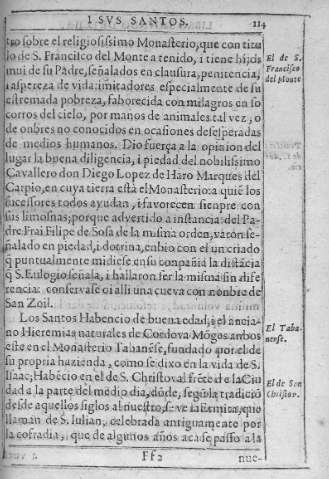 I SVS SANTOS. 114
tro sobre el religiosissimo Monasterio, que con titu
lo de S. Francisco del Monte a tenido, i tiene hijos
mui de su Padre, señalados en clausura, penitencia,
i aspereza de vida: imitadores especialmente de su
estremada pobreza, faborecida con milagros en so
corros del cielo, por manos de animales tal vez, o
de onbres no conocidos en ocasiones desesperadas
de medios humanos. Dio fuerça a la opinion del
lugar la buena diligencia, i piedad del nobilissimo
Cavallero don Diego Lopez de Haro Marques del
Carpio, en cuya tierra está el Monasterio: a quiē los
sucessores todos ayudan, i favorecen sienpre con
sus limosnas; porque advertido a instancia del Pa-
dre Frai Filipe de Sosa de la misma orden, varon se-
ñalado en piedad, i dotrina, enbio con el un criado
q̄ puntualmente midiese en su conpañia la distācia
q̄ S. Eulogio señala, i hallaron ser la misma sin dife
rencia: conservase oi alli una cueva con nonbre de
San Zoil.
Los Santos Habencio de buena edad, i el ancia-
no Hieremias naturales de Cordova Mōges ambos
este en el Monasterio Tabanēse, fundado por el de
su propria hazienda, como se dixo en la vida de S.
Isaac; Habēcio en el de S. Christoval frēte de la Ciu
dad a la parte del medio dia, dōde, segū la tradiciō
desde aquellos siglos al nuestro, se ve la Ermita, que
llaman de S. Iulian, celebrada antiguamente por
la cofradia, que de algunos años aca se passo a la
Ff2 nue-
El de S.
Francisco
del Monte
El Taba-
nense.
El de San
Christov.